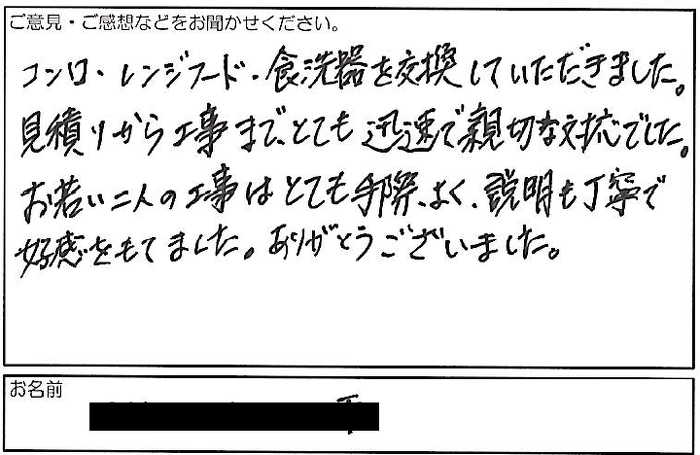 ご意見・ご感想などをお聞かせください。
コンロ・レンジフード・食洗器を交換していただきました。
見積りから工事まで、とても迅速で親切な対応でした。
お若い二人の工事はとても手際よく、説明も丁寧で
好感をもてました。ありがとうございました。
お名前